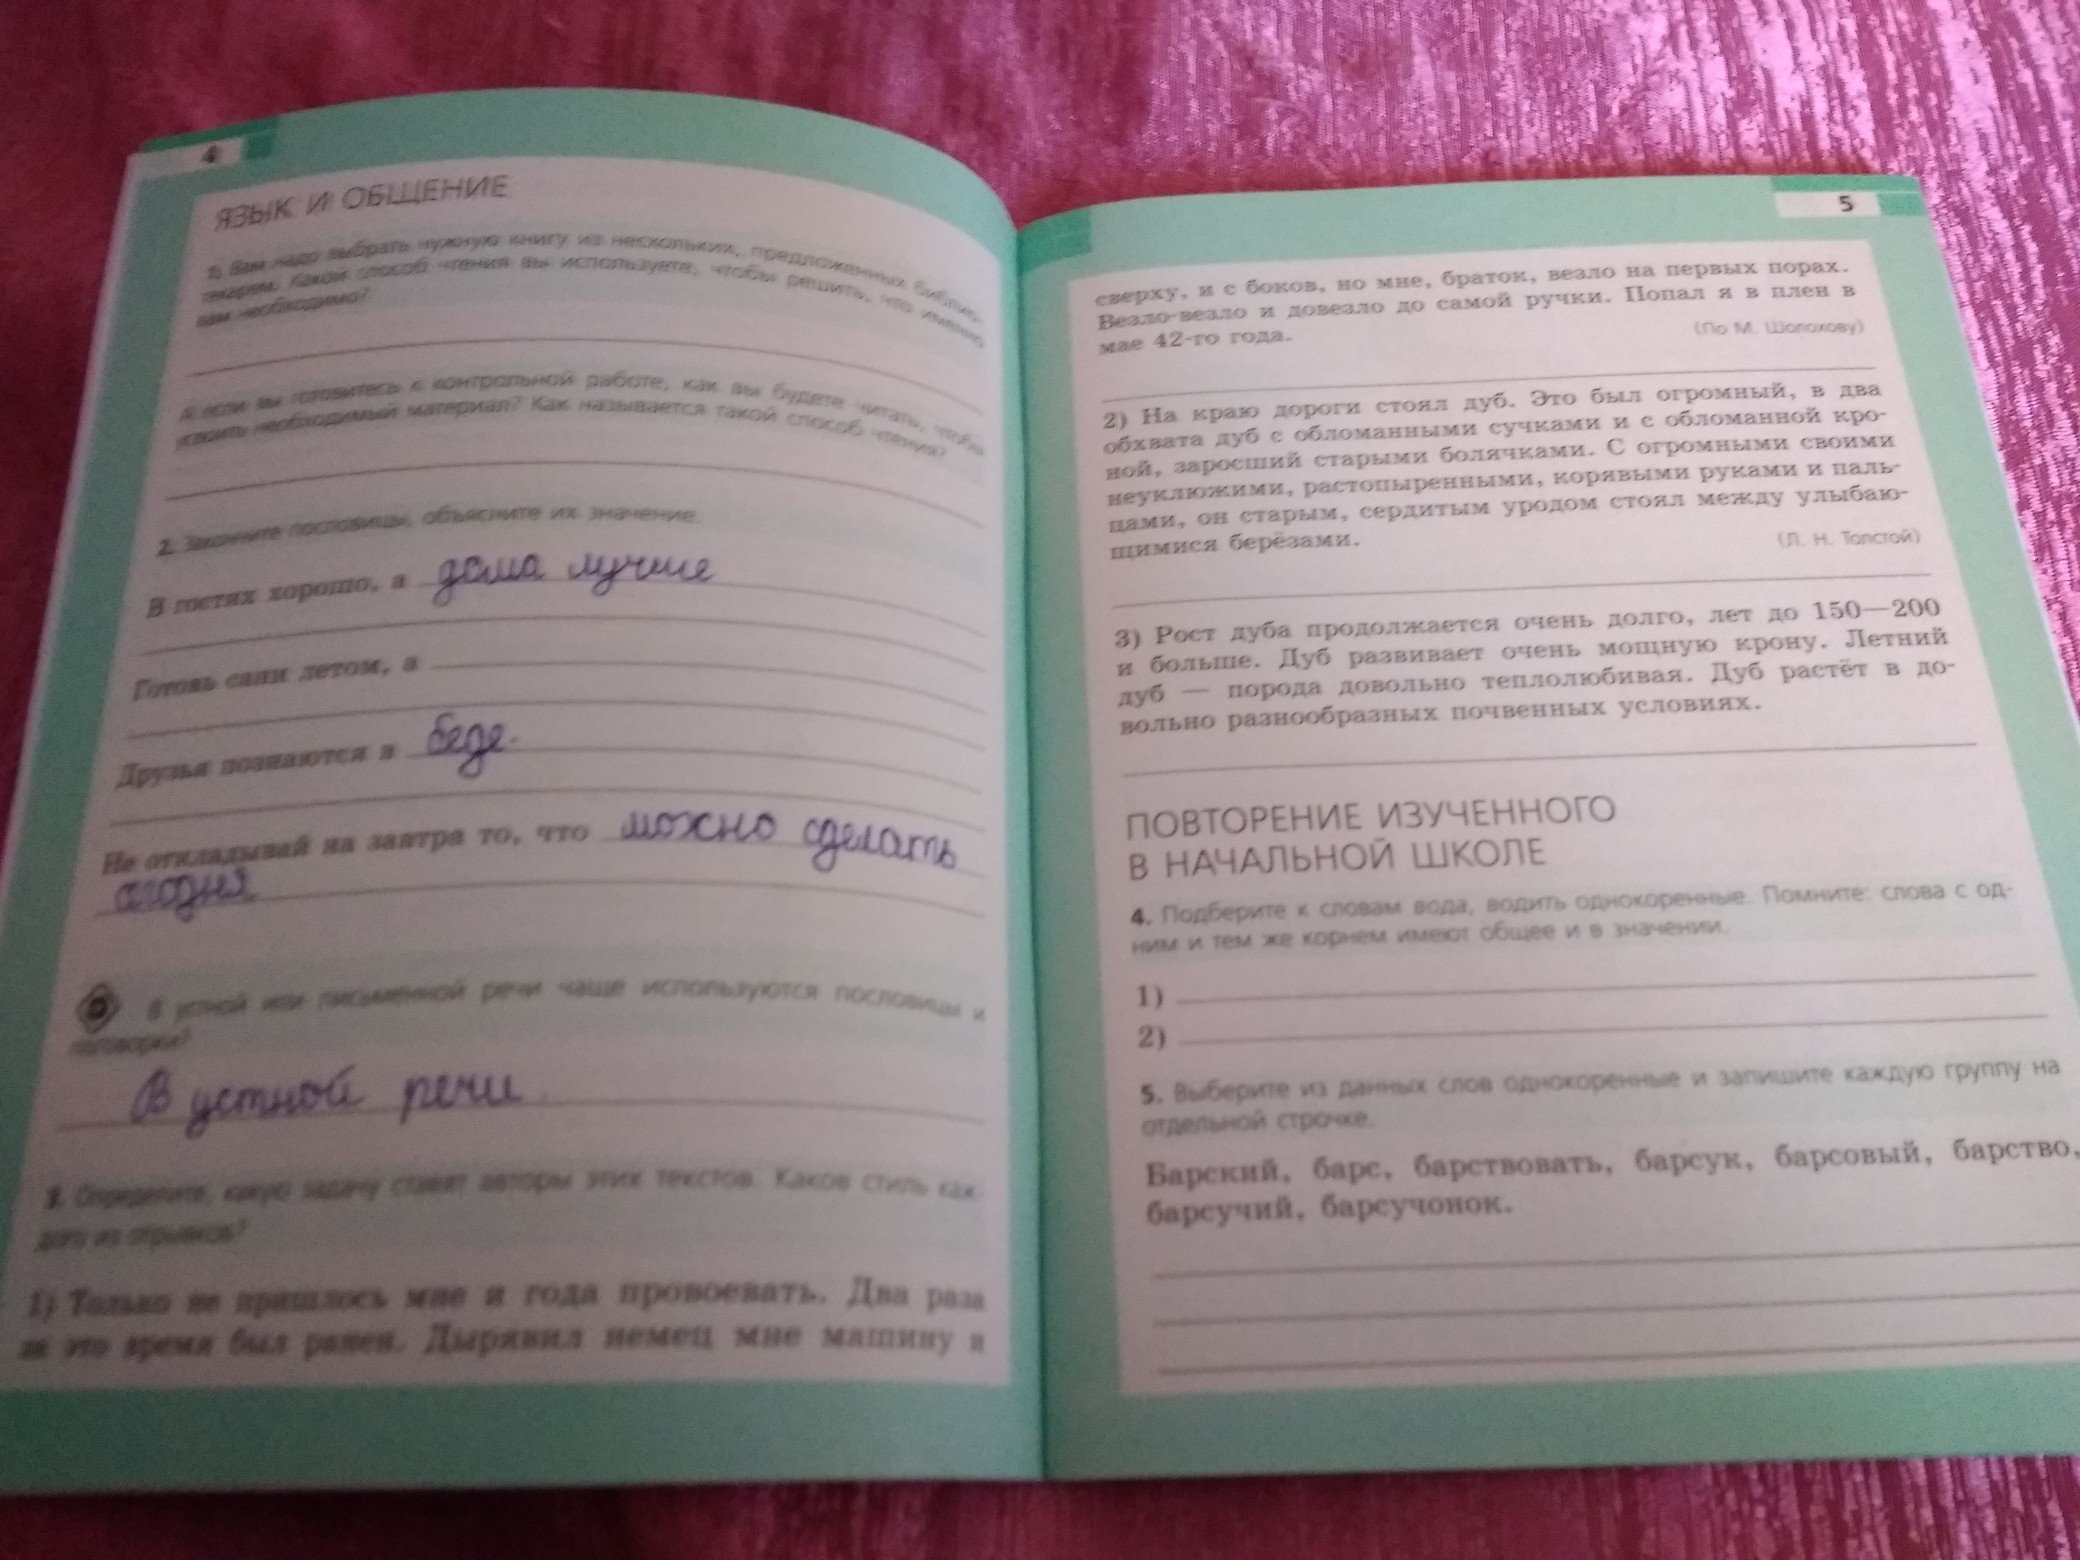 4
ЯЗЫК И ОБЩЕНИЕ
1. Вам надо выбрать нужную книгу из нескольких, предложенных библио-
текарем. Какой способ чтения вы используете, чтобы решить, что именно
вам необходимо?
А если вы готовитесь к контрольной работе, как вы будете читать, чтобы
усвоить необходимый материал? Как называется такой способ чтения?
2. Закончите пословицы, объясните их значение.
В гостях хорошо, а дома лучше
Готовь сани летом, а
Друзья познаются в беде.
Не откладывай на завтра то, что можно сделать
сегодня
В устной или письменной речи чаще используются пословицы и
поговорки?
В устной речи.
3. Определите, какую задачу ставят авторы этих текстов. Каков стиль каж-
дого из отрывков?
1) Только не пришлось мне и года провоевать. Два раза
за это время был ранен. Дырявил немец мне машину и
5
сверху, и с боков, но мне, браток, везло на первых порах.
Везло-везло и довезло до самой ручки. Попал я в плен в
мае 42-го года.
(По М. Шолохову)
2) На краю дороги стоял дуб. Это был огромный, в два
обхвата дуб с обломанными сучками и с обломанной кро-
ной, заросший старыми болячками. С огромными своими
неуклюжими, растопыренными, корявыми руками и паль-
цами, он старым, сердитым уродом стоял между улыбаю-
щимися берёзами.
(Л. Н. Толстой)
3) Рост дуба продолжается очень долго, лет до 150—200
и больше. Дуб развивает очень мощную крону. Летний
дуб — порода довольно теплолюбивая. Дуб растёт в до-
вольно разнообразных почвенных условиях.
ПОВТОРЕНИЕ ИЗУЧЕННОГО
В НАЧАЛЬНОЙ ШКОЛЕ
4. Подберите к словам вода, водить однокоренные. Помните: слова с од-
ним и тем же корнем имеют общее и в значении.
1)
2)
5. Выберите из данных слов однокоренные и запишите каждую группу на
отдельной строчке.
Барский, барс, барствовать, барсук, барсовый, барство,
барсучий, барсучонок.